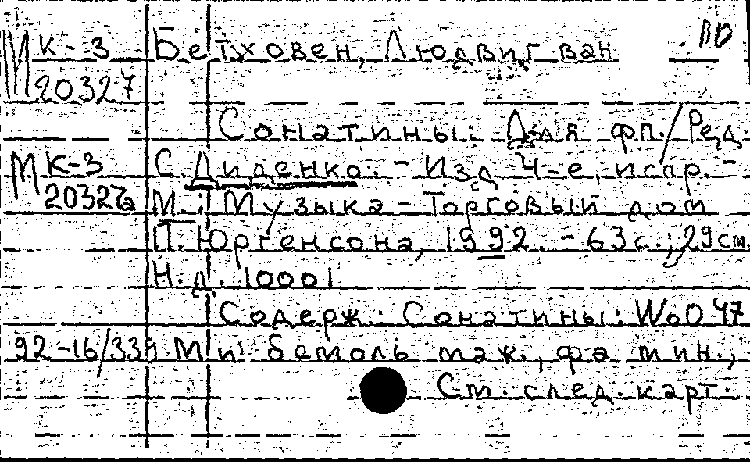 МК-3 Бетховен, Людвиг ван ВО
20327
Сонатины: Для фп./Ред.
МК-3 С. Диденко. - Изд. 4-е, испр. -
20327а М.: Музыка - Торговый дом
П. Юргенсона, 1992. - 63 с.; 29 см
Н.д. 10001
Содерж.: Сонатины: WoO 47
92-16/339 Ми бемоль маж., фа мин.,
См. след. карт.